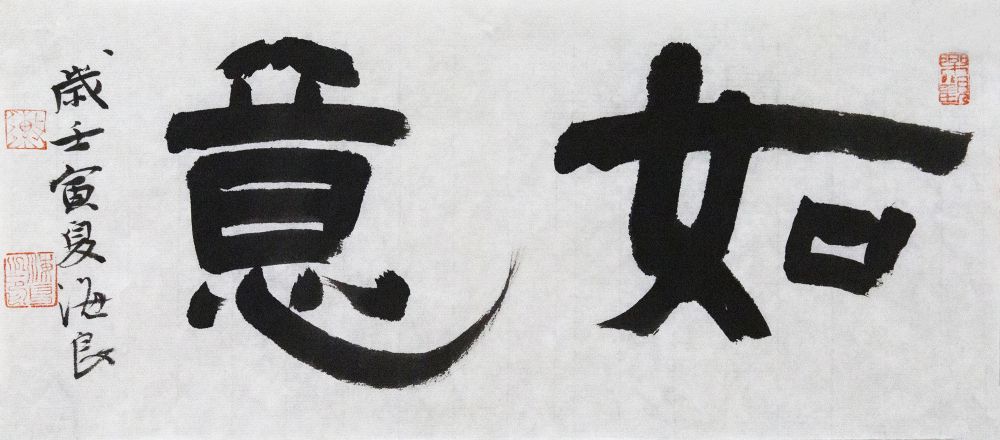 如意
歲壬寅夏海良